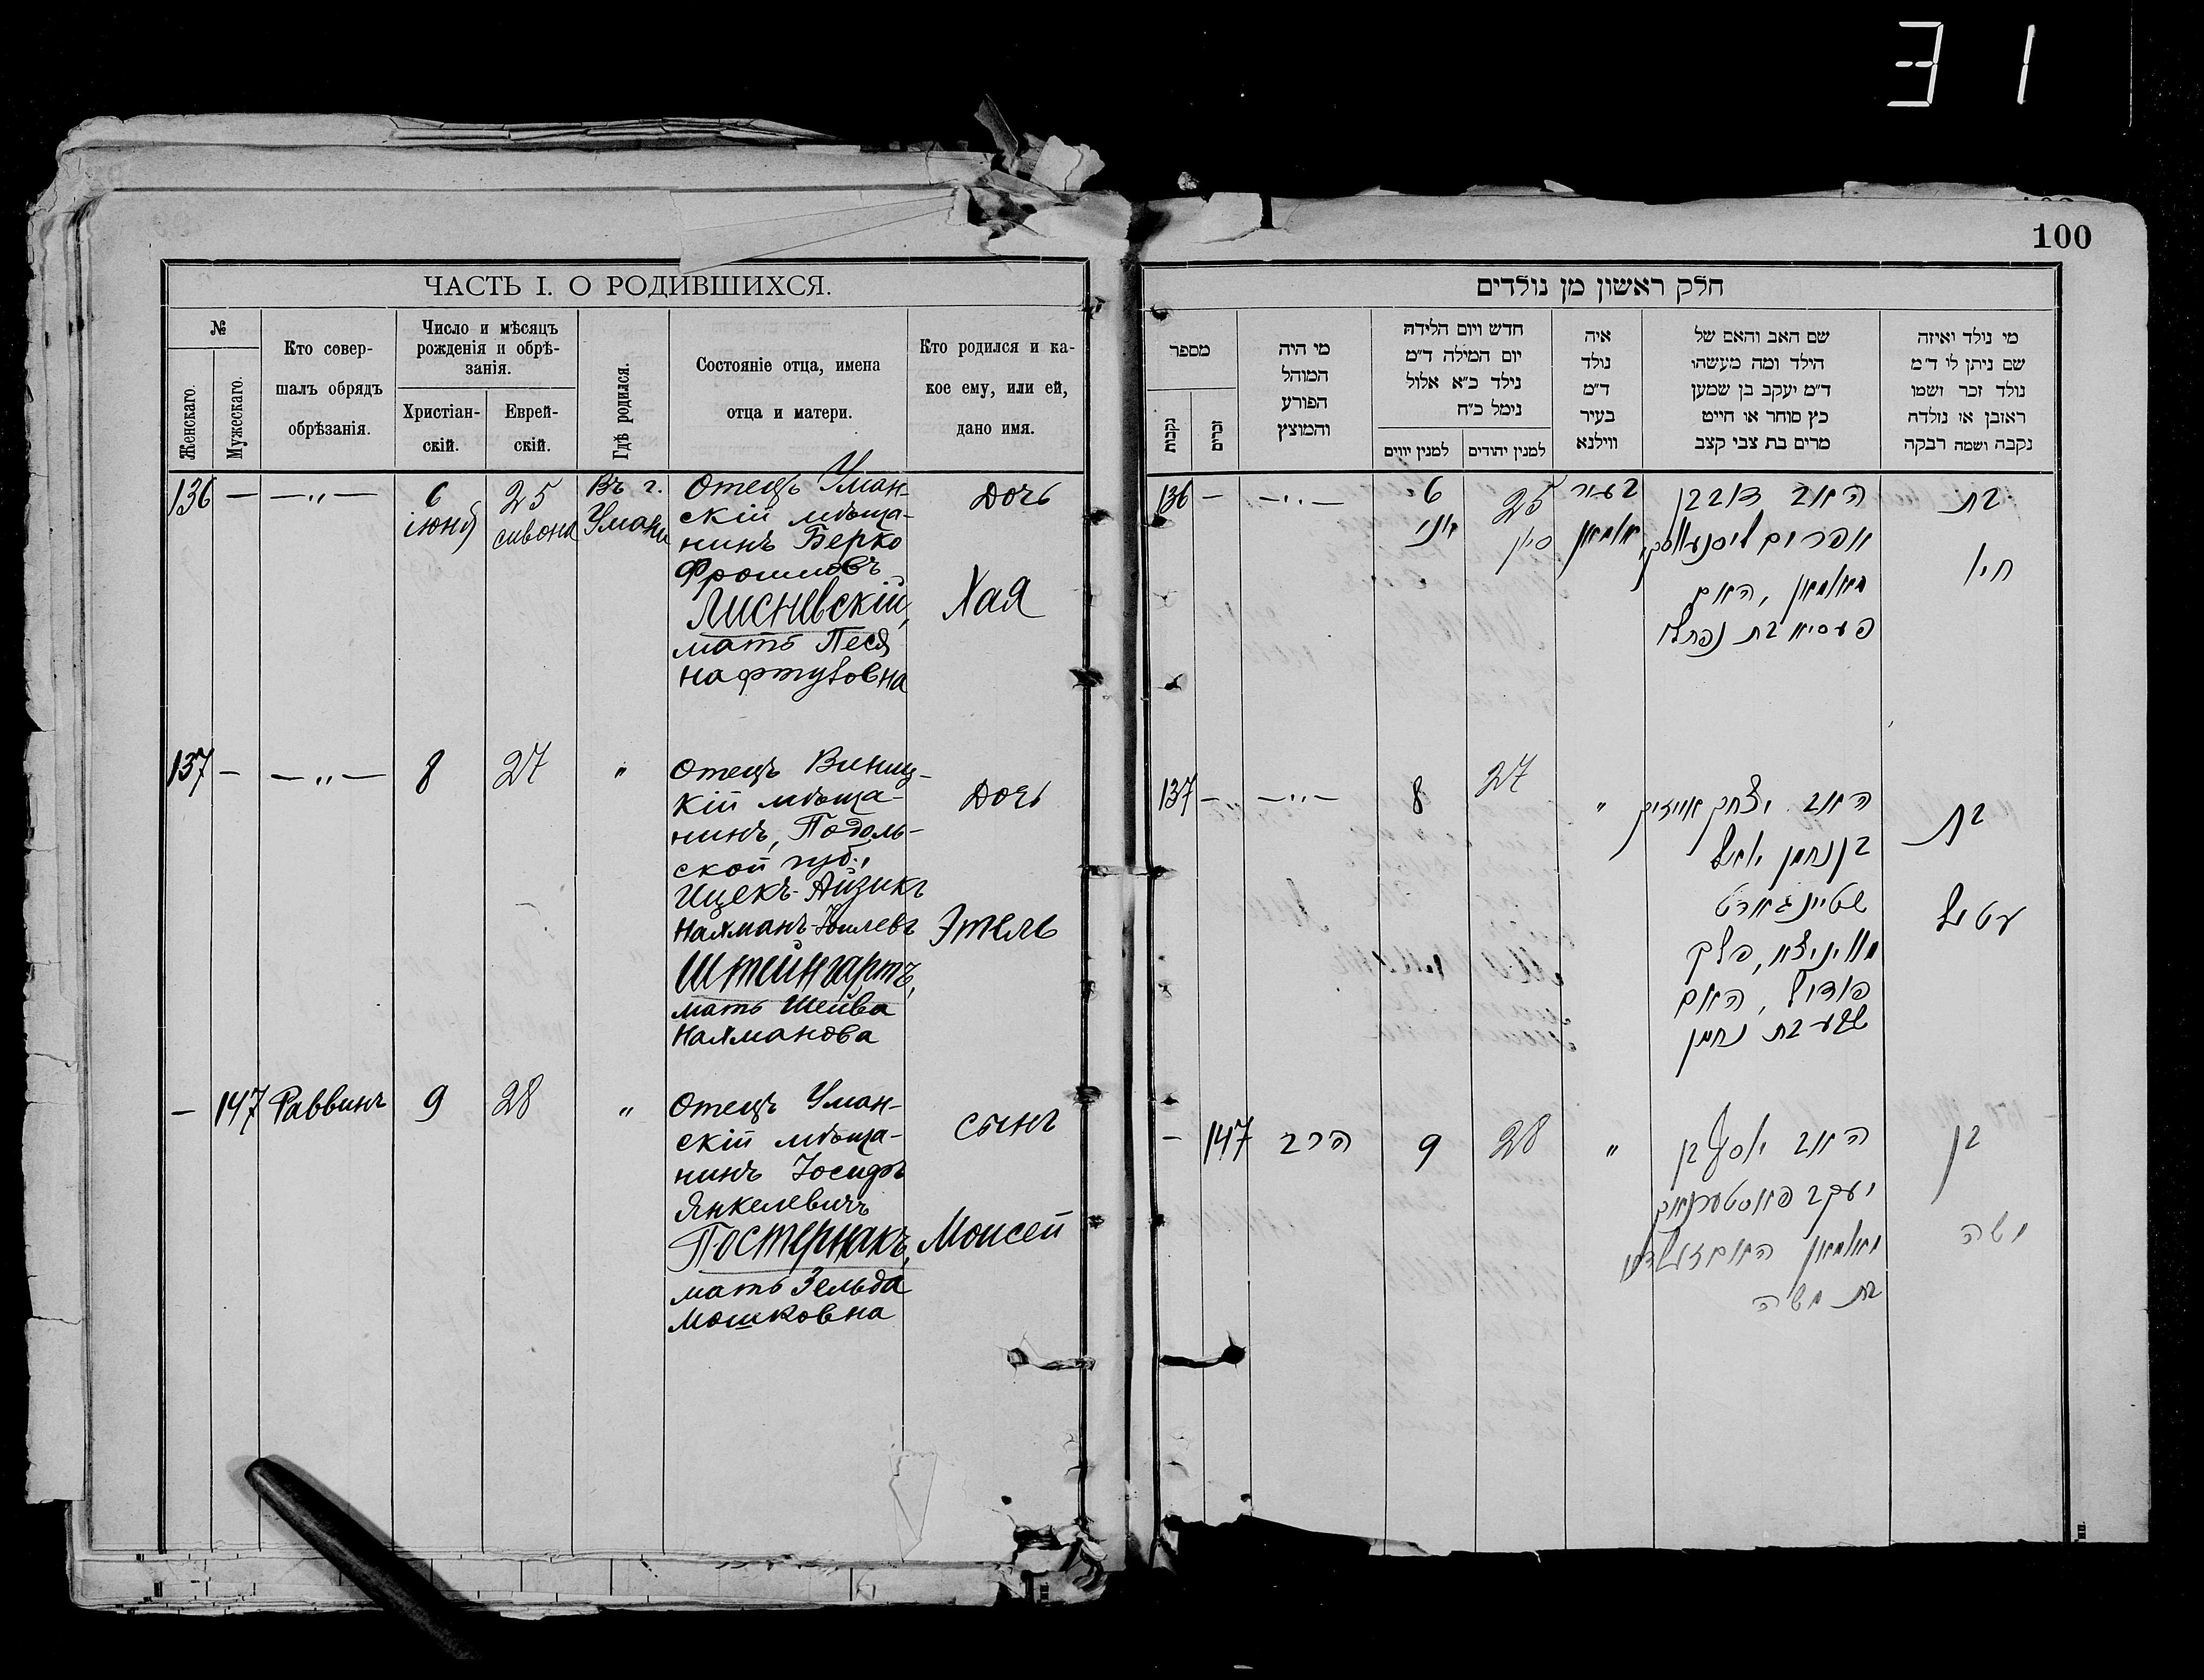 31
100
ЧАСТЬ I. О РОДИВШИХСЯ.
№
Женскаго.
Мужескаго.
Кто совер-
шалъ обрядъ
обрѣзанія.
Число и мѣсяцъ
рожденія и обрѣ-
занія.
Христіан-
скій.
Еврей-
скій.
Гдѣ родился.
Состояніе отца, имена
отца и матери.
Кто родился и ка-
кое ему, или ей,
дано имя.
136 — — „ —
6
іюня
25
сивона
Въ г.
Умани
Отецъ Уман-
скій мѣща-
нинъ Берко
Фроимовъ
Лисневскій,
мать Песя
Нафтуловна
Дочь
Хая
137 — — „ — 8 27 „
Отецъ Виниц-
кій мѣща-
нинъ, Подоль-
ской губ.,
Ицекъ-Айзикъ
Нахманъ-Іойлевъ
Штейнгартъ,
мать Шейва
Нахманова
Дочь
Этель
— 147 Раввинъ 9 28 „
Отецъ Уман-
скій мѣща-
нинъ Іосифъ
Янкелевичъ
Постернакъ,
мать Зельда
Мошковна
Сынъ
Моисей
חלק ראשון מן נולדים
מספר
נקבות
זכרים
מי היה
המוהל
הפורע
והמוצץ
חדש ויום הלידה
יום המילה ד״מ
נילד כ״א אלול
נימל כ״ח
למנין יווים
למנין יהודים
איה
נולד
ד״מ
בעיר
ווילנא
שם האב והאם של
הילד ומה מעשהו
ד״מ יעקב בן שמען
כץ סוחר או חייט
מרים בת צבי קצב
מי נולד ואיזה
שם ניתן לו ד״מ
נולד זכר ושמו
ראובן או נולדה
נקבה ושמה רבקה
136 — — „ —
6
יוני
25
סיון
בעיר
אומאן
האב דוב בן
אפרים ליסנעווסקי
מאומאן, האם
פעסיא בת נפתלי
בת
חיה
137 — — „ — 8 27 „
האב יצחק אייזיק
בן נחמן יואל
שטיינגארט
מוויניצא, פלך
פודול, האם
בת נחמן
בת
עטיל
— 147 הרב 9 28 „
האב יוסף בן
יעקב פאסטערנאק
מאומאן האם זעלדע
בת משה
בן
משה